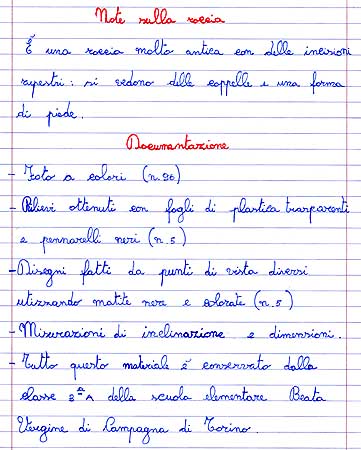 Note sulla roccia
È una roccia molto antica con delle incisioni
rupestri: si vedono delle coppelle e una forma
di piede.
Documentazione
- Foto a colori (n.96)
- Rilievi ottenuti con fogli di plastica trasparenti
e pennarelli neri (n.5)
- Disegni fatti da punti di vista diversi
utilizzando matite nere e colorate (n.5)
- Misurazioni di inclinazione e dimensioni.
- Tutto questo materiale è conservato dalla
classe 3ªA della scuola elementare Beata
Vergine di Campagna di Torino.